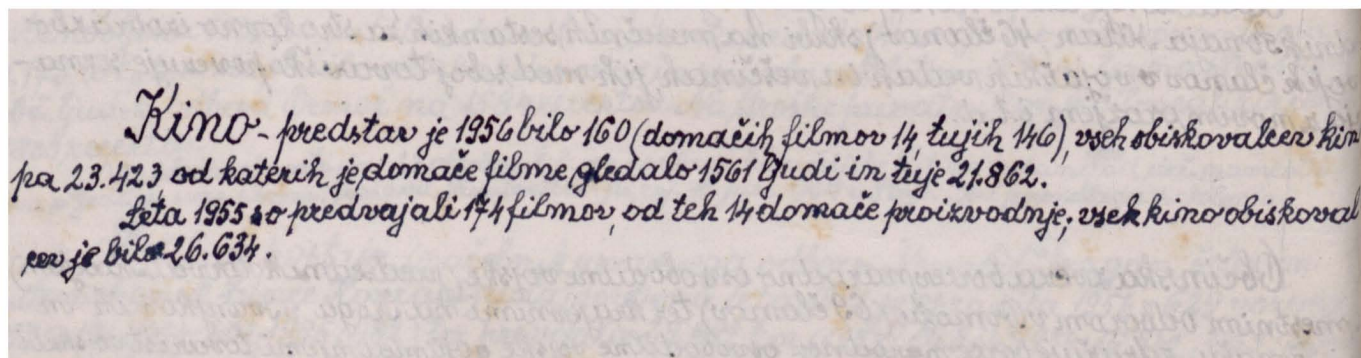 Kino - predstav je 1956 bilo 160 (domačih filmov 14, tujih 146), vseh obiskovalcev kin
pa 23.423, od katerih je domače filme gledalo 1561 ljudi in tuje 21.862.
Leta 1955 so predvajali 174 filmov, od teh 14 domače proizvodnje; vseh kino obiskoval
cev je bilo 26.634.